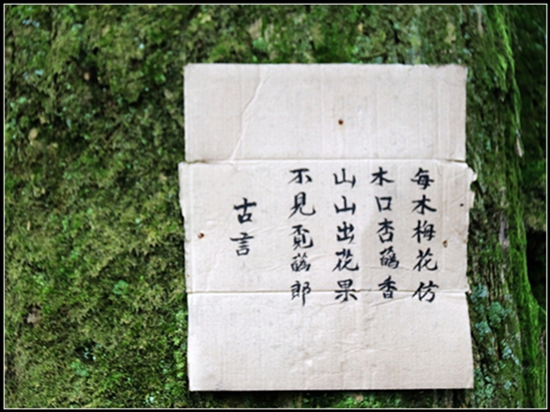 每木梅花仿
木口杏香
山山出花果
不見覔郎
古言